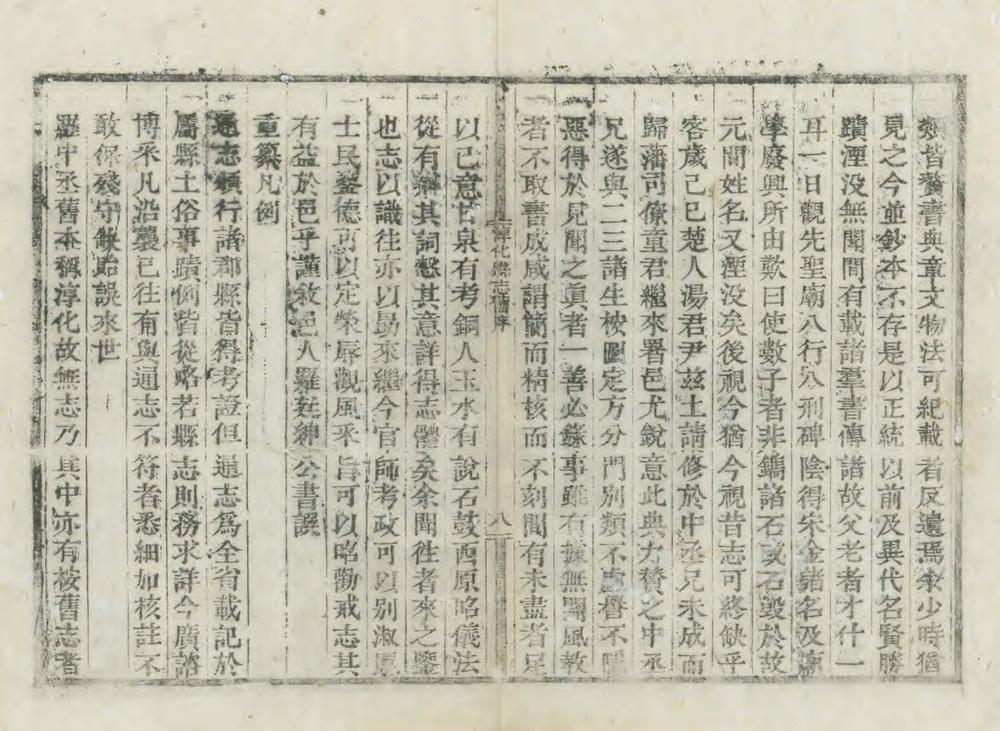 類皆贅書與章文物法可紀載者反遺焉余少時猶
見之今並鈔本不存是以正統以前及異代名賢勝
蹟湮没無聞間有載諸羣書傳諸故父老者才什一
耳一日觀先聖廟八行八刑碑陰得宋金諸名及
學廢興所由歎曰使數子者非鐫諸石或石毀於故
元間姓名又湮没矣後視今猶今視昔志可終缺乎
客歲己巳楚人湯君尹兹土請修於中丞兄未成而
歸藩司僚童君繼來署邑尤銳意此典大贊之中丞
兄遂與二三諸生桉圖定方分門別類不虛譽不隱
惡得於見聞之眞者一善必錄事雖右據無關風教
者不取書成咸謂簡而精核而不刻間有未盡者足
淳化縣志舊序
八
以己意甘泉有考銅人玉水有說石鼓西原昭儀法
從有辯其詞慤其意詳得志體矣余聞徃者來之鑒
也志以識往亦以勗來繼今官師考政可以別淑慝
士民鍳德可以定榮辱觀風釆旨可以昭勸戒志其
有益於邑乎謹敘邑人羅廷紳公書譔
重纂凡例
一通志頒行諸郡縣皆得考證但通志爲全省載記於
屬縣土俗事蹟例皆從略若縣志則務求詳今廣諮
博釆凡沿襲已往有與通志不符者悉細加核註不
敢保殘守缺貽誤來世
一羅中丞舊本稱淳化故無志乃其中亦有桉舊志者